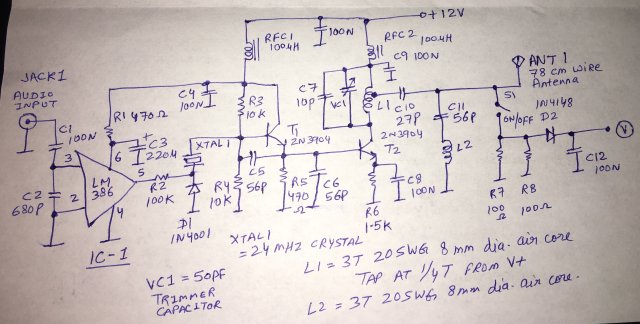 o+12V
RFC1
100µH
100N
RFC2 100µH
C9 100N
ANT 1
78 cm wire
Antenna
JACK1
AUDIO
INPUT
C4
100N
R1 470Ω
R3
10K
C7
10P
VC1
L1
C10
27P
C11
56P
S1
ON/OFF
1N4148
D2
V
C1
100N
C3
220µ
+
XTAL1
T1
2N3904
2N3904
T2
L2
3
6
5
2
4
LM
386
R2
100K
C5
56P
R4
10K
R5
470
Ω
C6
56P
C8
100N
C12
100N
C2
680P
D1
1N4001
R6
1.5K
R7
100
Ω
R8
100Ω
IC-1
XTAL1
= 24 MHZ CRYSTAL
VC1 = 50PF
TRIMMER
CAPACITOR
L1 = 3T 20SWG 8 mm dia. air core
TAP AT 1/4 T FROM V+
L2 = 3T 20SWG 8mm dia. air core.